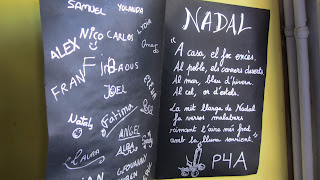 SAMUEL YOLANDA
ALEX NICO CARLOS LYDIA
FRAN FIRDAOUS
JOEL
Nataly Fatima
ANGEL
LAURA ALBA
GIOVANNY
NADAL
"A casa, el foc encès.
Al poble, els carrers deserts
Al mar, blau d'hivern.
Al cel, or d'estels.
La nit llarga de Nadal
fa versos malabars
rimant l'aire més fred
amb la lluna somrient."
P4A